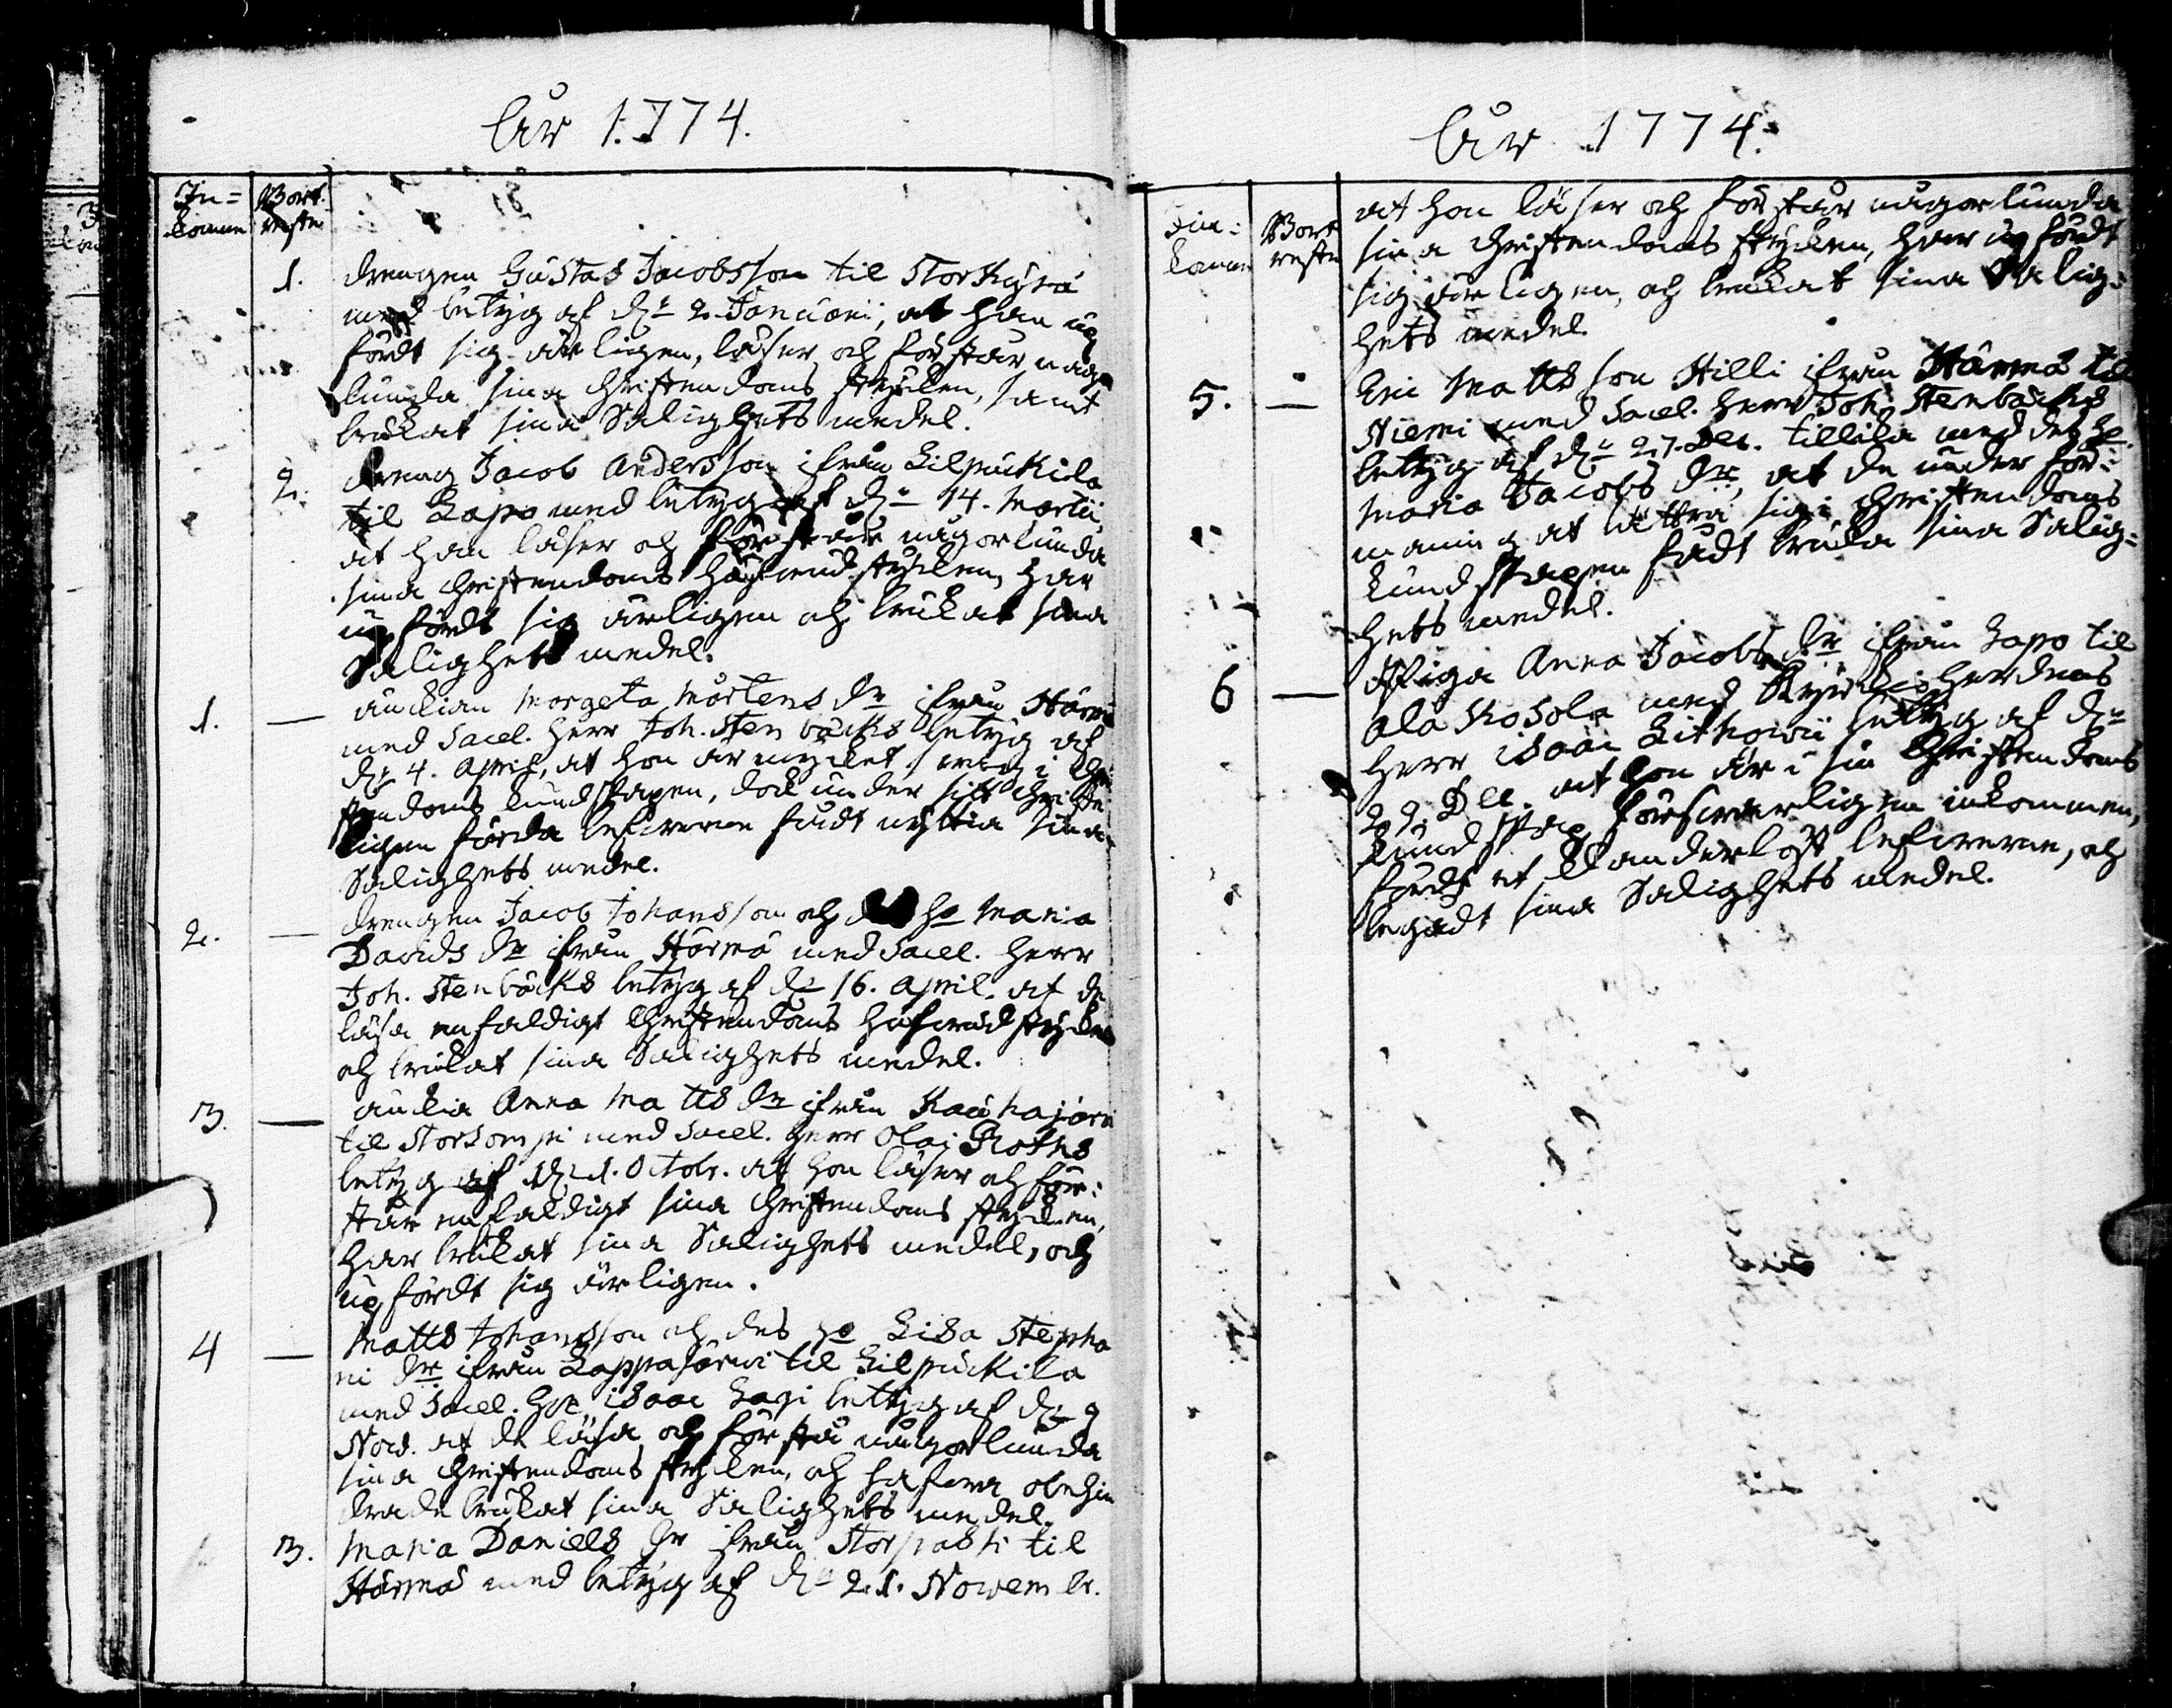 År 1774.
In= Bort
komne reste
1. drengen Gustav Jacobsson til StorKyrå
med betyg af d: 2. Januarii, at han up
fördt sig ärligen, läser och förstår någor
lunda sina Christendoms stycken, samt
brukat sina Salighets medel.
2. dreng Jacob Andersson ifrån Lilpuckila
til Lapo med betyg af d: 14. Martii
at han läser och förstår någorlunda
sina Christendoms hufvudstycken, har
upfördt sig ärligen och brukat sina
Salighets medel.
1. — änckian Margeta Mårtens dr ifrån Härmä
med Sacel. Herr Joh. Stenbäcks betyg af
d: 4. April, at hon är mycket svag i Chri
stendoms kundskapen, dock under sitt Christe
ligen förda lefverne fådt nyttia sina
Salighets medel.
2. — drengen Jacob Johansson och hu Maria
Davids dr ifrån Härmä med Sacel. Herr
Joh. Stenbäcks betyg af d: 16. April. at de
läsa enfaldigt Christendoms hufvudstycken
och brukat sina Salighets medel.
3. — änckia Anna Matts dr ifrån Kauhajärvi
til Storsompi med Sacel. Herr Olaj Roths
betyg af d: 1. Octobr. at hon läser och för:
står enfaldigt sina Christendoms stycken,
har brukat sina Salighets medel, och
upfördt sig ärligen.
4 — Matts Johansson och des hu Lisa Stepha
ni dr ifrån Lappajärvi til Lilpuckila
med Sacel. Hr Isaac Lagi betyg af d: 9
Nov. at de läsa och förstå någorlunda
sina Christendoms stycken, och hafva obehin
drade brukat sina Salighets medel.
3. Maria Daniels dr ifrån Storpasti til
Härmä med betyg af d: 21. Novembr.
År 1774.
In= Bort
komne reste
at hon läser och förstår någorlunda
sina Christendoms stycken, har upfördt
sig ärligen, och brukat sina Salig=
hets medel.
5. — Eric Mattsson Hilli ifrån Härmä til
Niemi med Sacel. Herr Joh. Stenbäcks
betyg af d: 27. Dec. tillika med des hu
Maria Jacobs dr, at de under för=
maning at bättra sig i Christendoms
kundskapen fådt bruka sina Salig=
hets medel.
6 — Piga Anna Jacobs dr ifrån Lapo til
Ala Kosola med Kyrckioherdens
Herr Isaac Lithovii betyg af d:
29. Dec. at hon är i sin Christendoms
kundskap försvarligen inkommen,
fördt et klanderlöst lefverne, och
begådt sina Salighets medel.